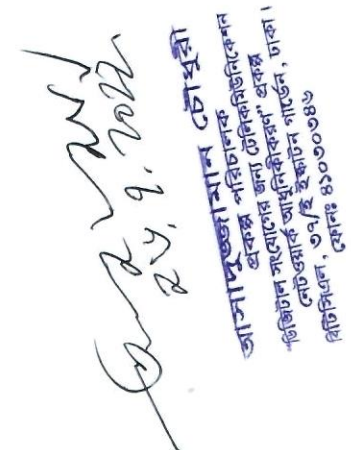 আসাদুজ্জামান চৌধুরী
প্রকল্প পরিচালক
ডিজিটাল সংযোগের জন্য টেলিকমিউনিকেশন
নেটওয়ার্ক আধুনিকীকরণ" প্রকল্প
বিটিসিএল, ৩৭/ই ইস্কাটন গার্ডেন, ঢাকা।
ফোনঃ ৪১০৩০৩৪৬